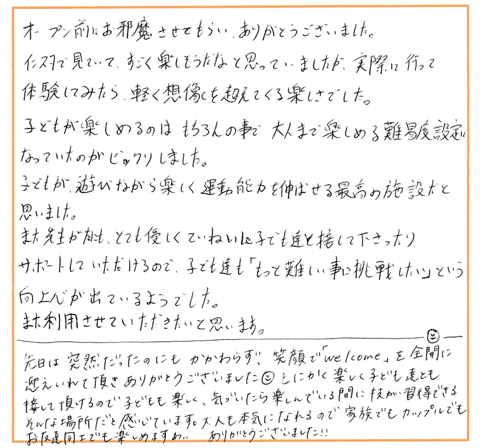 オープン前にお邪魔させてもらい、ありがとうございました。
インスタで見ていて、すごく楽しそうだなと思っていましたが、実際に行って
体験してみたら、軽く想像を超えてくる楽しさでした。
子どもが楽しめるのはもちろんの事で大人まで楽しめる難易度設定に
なっていたのがビックリしました。
子どもが、遊びながら楽しく運動能力を伸ばせる最高の施設だと
思いました。
また先生方も、とても優しくていねいに子ども達と接して下さったり
サポートしていただけるので、子ども達も「もっと難しい事に挑戦したい」という
向上心が出ているようでした。
また利用させていただきたいと思います。
先日は突然だったのにもかかわらず!!笑顔で「welcome」を全開に
迎えいれて頂きありがとうございました とにかく楽しく子ども達とも
接して頂けるので子どもも楽し、気づいたら楽しんでいる間に技が習得できる
そんな場所だと感じています。大人も本気になれるので家族でもカップルでも
お友達同士でも楽しめますね!! ありがとうございました!!